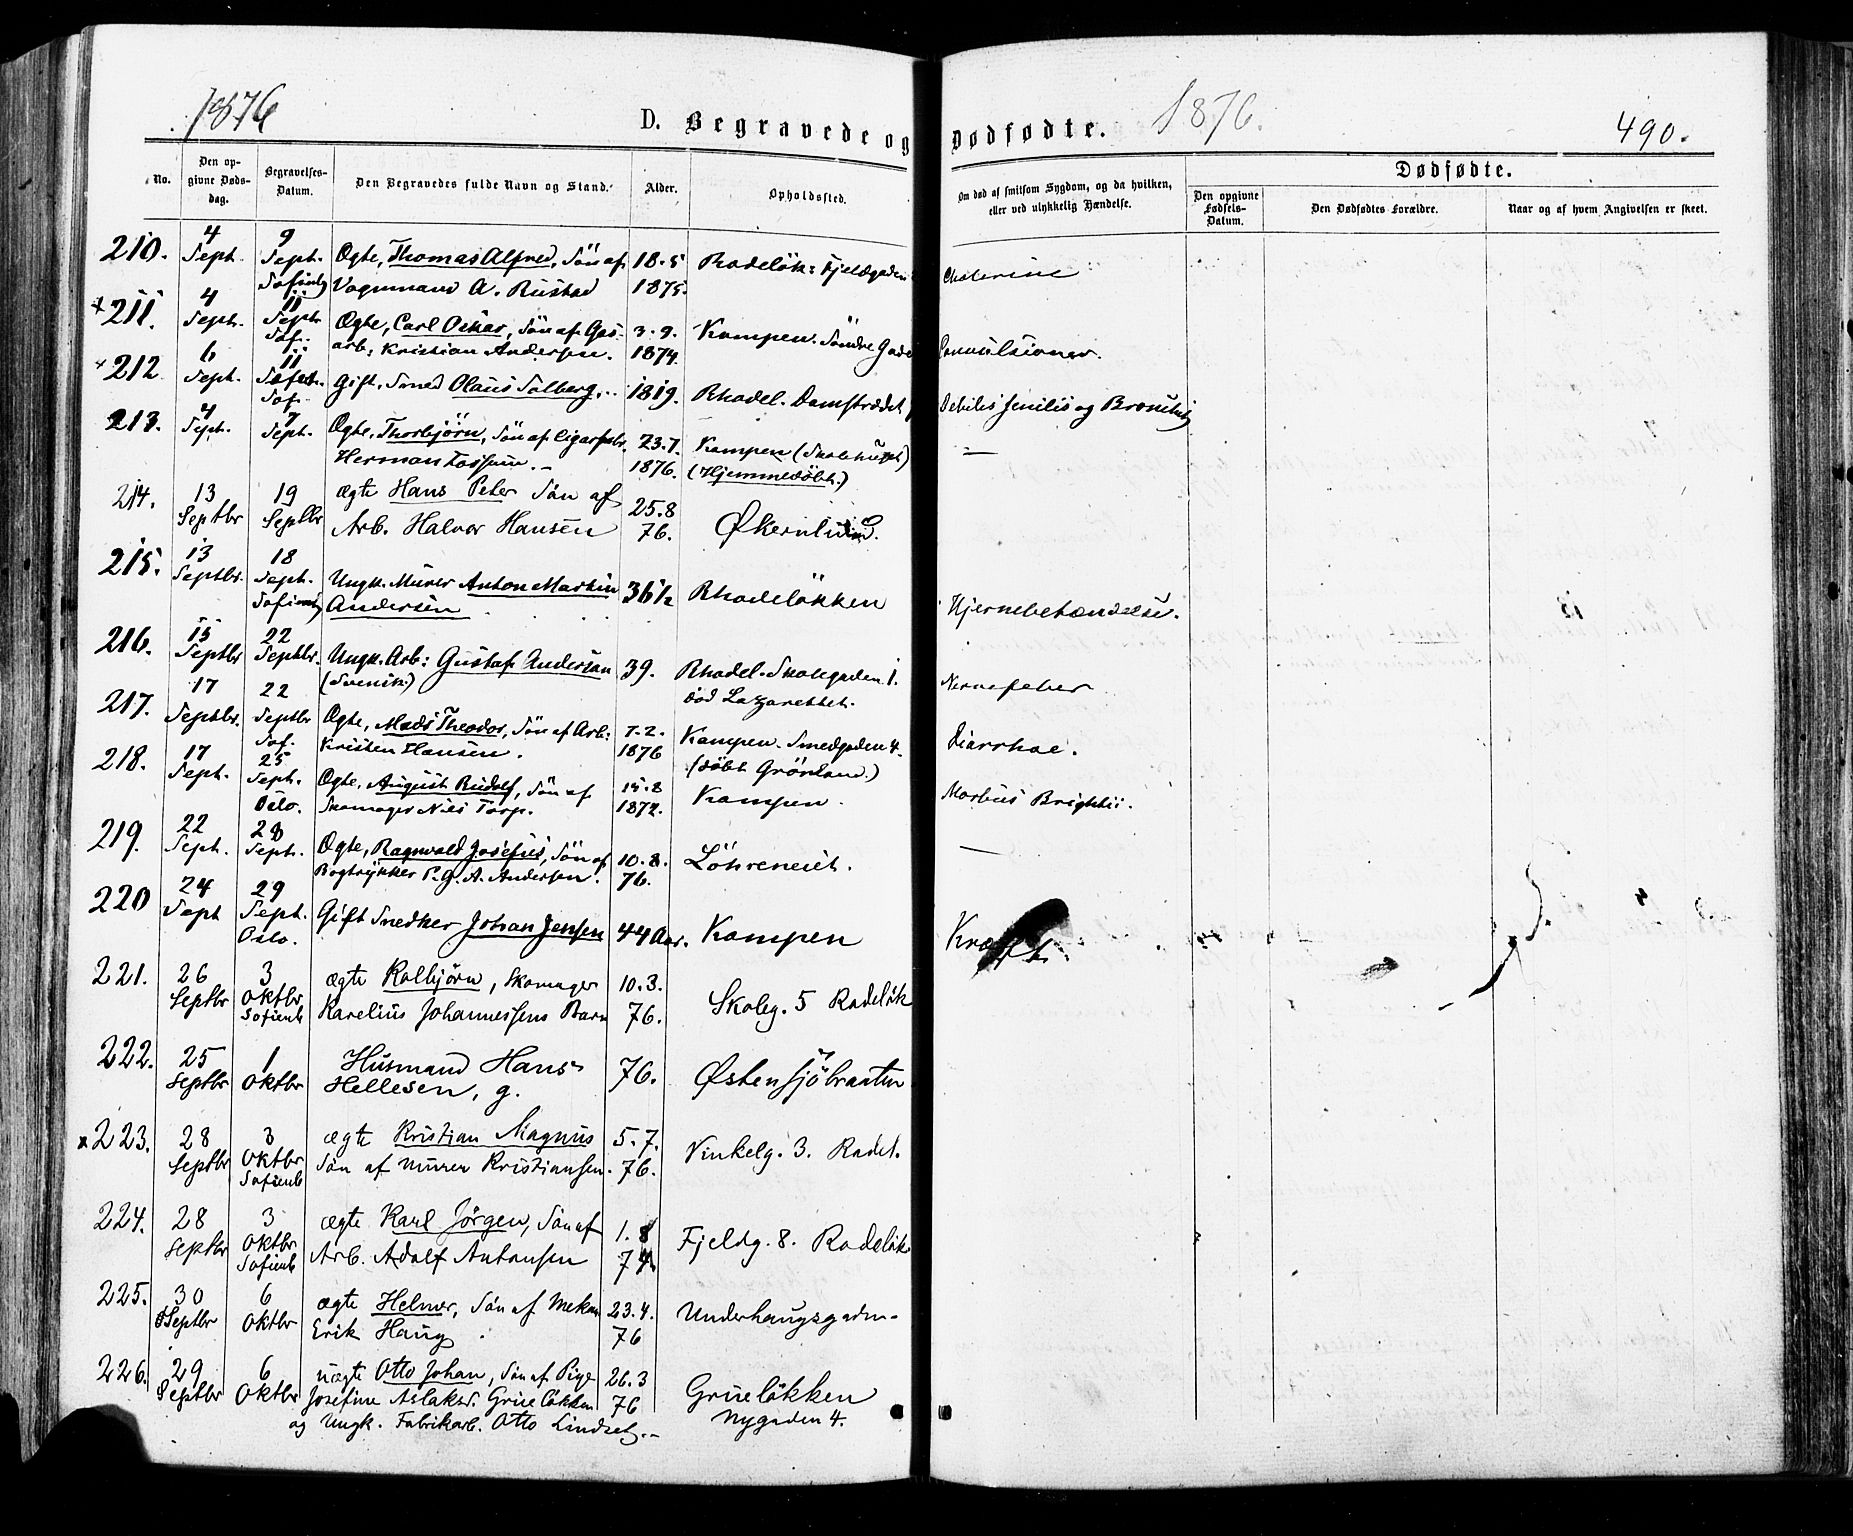 1876
D. Begravede og Dødfødte.
1876.
490.
No.
Den opgivne Døds-dag.
Begravelses-Datum.
Den Begravedes fulde Navn og Stand.
Alder.
Opholdssted.
Om død af smitsom Sygdom, og da hvilken,
eller ved ulykkelig Hændelse.
Dødfødte.
Den opgivne Fødsels-Datum.
Den Dødfødtes Forældre.
Naar og af hvem Angivelsen er skeet.
210. 4 Sept. 9 Sept. Ægte, Thomas Alfred, Sön af 18-5 Rodelök: Fjeldgaden Cholerine
Vognmand A. Rustad 1875.
211. 4 Sept. 11 Septr Sof. Ægte, Carl Oskar, Sön af Gas- 3-9. Kampen. Söndre Gade Convulsioner.
arb: Kristian Andersen. 1874.
212 6 Sept. 11 Sof. Gift. Smed Olaus Solberg. 1819. Rhodel. Damstrædet Debilis senilis og Bronchit
213. 4 Sept. 7 Sept. Ægte, Thorbjörn, Sön af Cigarfabr. 23.7. Kampen (Skolehuset) —
Herman Fossum. 1876. (Hjemmedöbt.)
214. 13 Septbr 19 Septbr ægte Hans Peter Sön af 25.8
Arb. Halvor Hansen 76. Økern
215. 13 Septbr. 18 Sept. Ungk. Murer Anton Martin 36½ Rhodelökken Hjernebetændelse.
Andersen
216. 15 Septbr 22 Septbr. Ungk. Arb: Gustaf Anderson 39. Rhodel. Skolegaden 1. Nervefeber
(Svensk) död Lazarettet.
217. 17 Septbr. 22 Septbr Sof. Ægte, Mads Theodor, Sön af Arb: 7-2. Kampen. Smedgaden 4. Diarrhoe.
Kristen Hansen. 1876 (döbt Grönland.)
218. 17 Sept. 25 Sept. Oslo. Ægte, August Rudolf, Sön af 15.8 Kampen. Morbus Brightii.
Skomager Nils Torp. 1872.
219. 22 Sept. 28 Sept. Ægte, Ragnvald Josefus, Sön af 10.8. Löhreneiet. —
Bogtrykker P. G. A. Andersen. 76.
220 24 Sept 29 Sept. Oslo. Gift Snedker Johan Jensen 44 Aar. Kampen
221. 26 Septbr 3 Oktbr Sofienb ægte Kolbjörn, Skomager 10.3. Skoleg. 5 Rodelök
Karelius Johannessens Barn 76.
222. 25 Septbr 1 Oktbr Husmand Hans 76. Østensjöbraaten
Hellesen, g.
x 223. 28 Septbr 3 Oktbr Sofienb ægte Kristian Magnus 5.7. Vinkelg. 3. Rodel.
Sön af Murer Kristiansen. 76.
224. 28 Septbr 3 Oktbr Sofienb ægte Karl Jörgen, Sön af 1.8 Fjeldg. 8. Rodelök
Arb. Adolf Antonsen 74
225. 30 Septbr 6 Oktbr ægte Helmer, Sön af Mekan 23.4. Underhaugsgaden
Erik Haug. 76
226. 29 Septbr 6 Oktbr uægte Otto Johan, Sön af Pige 26.3 Grüelökken
Josefine Aslaksd. Grüelökken 76 Nygaden 4.
og Ungk. Fabrikarb. Otto Lindset